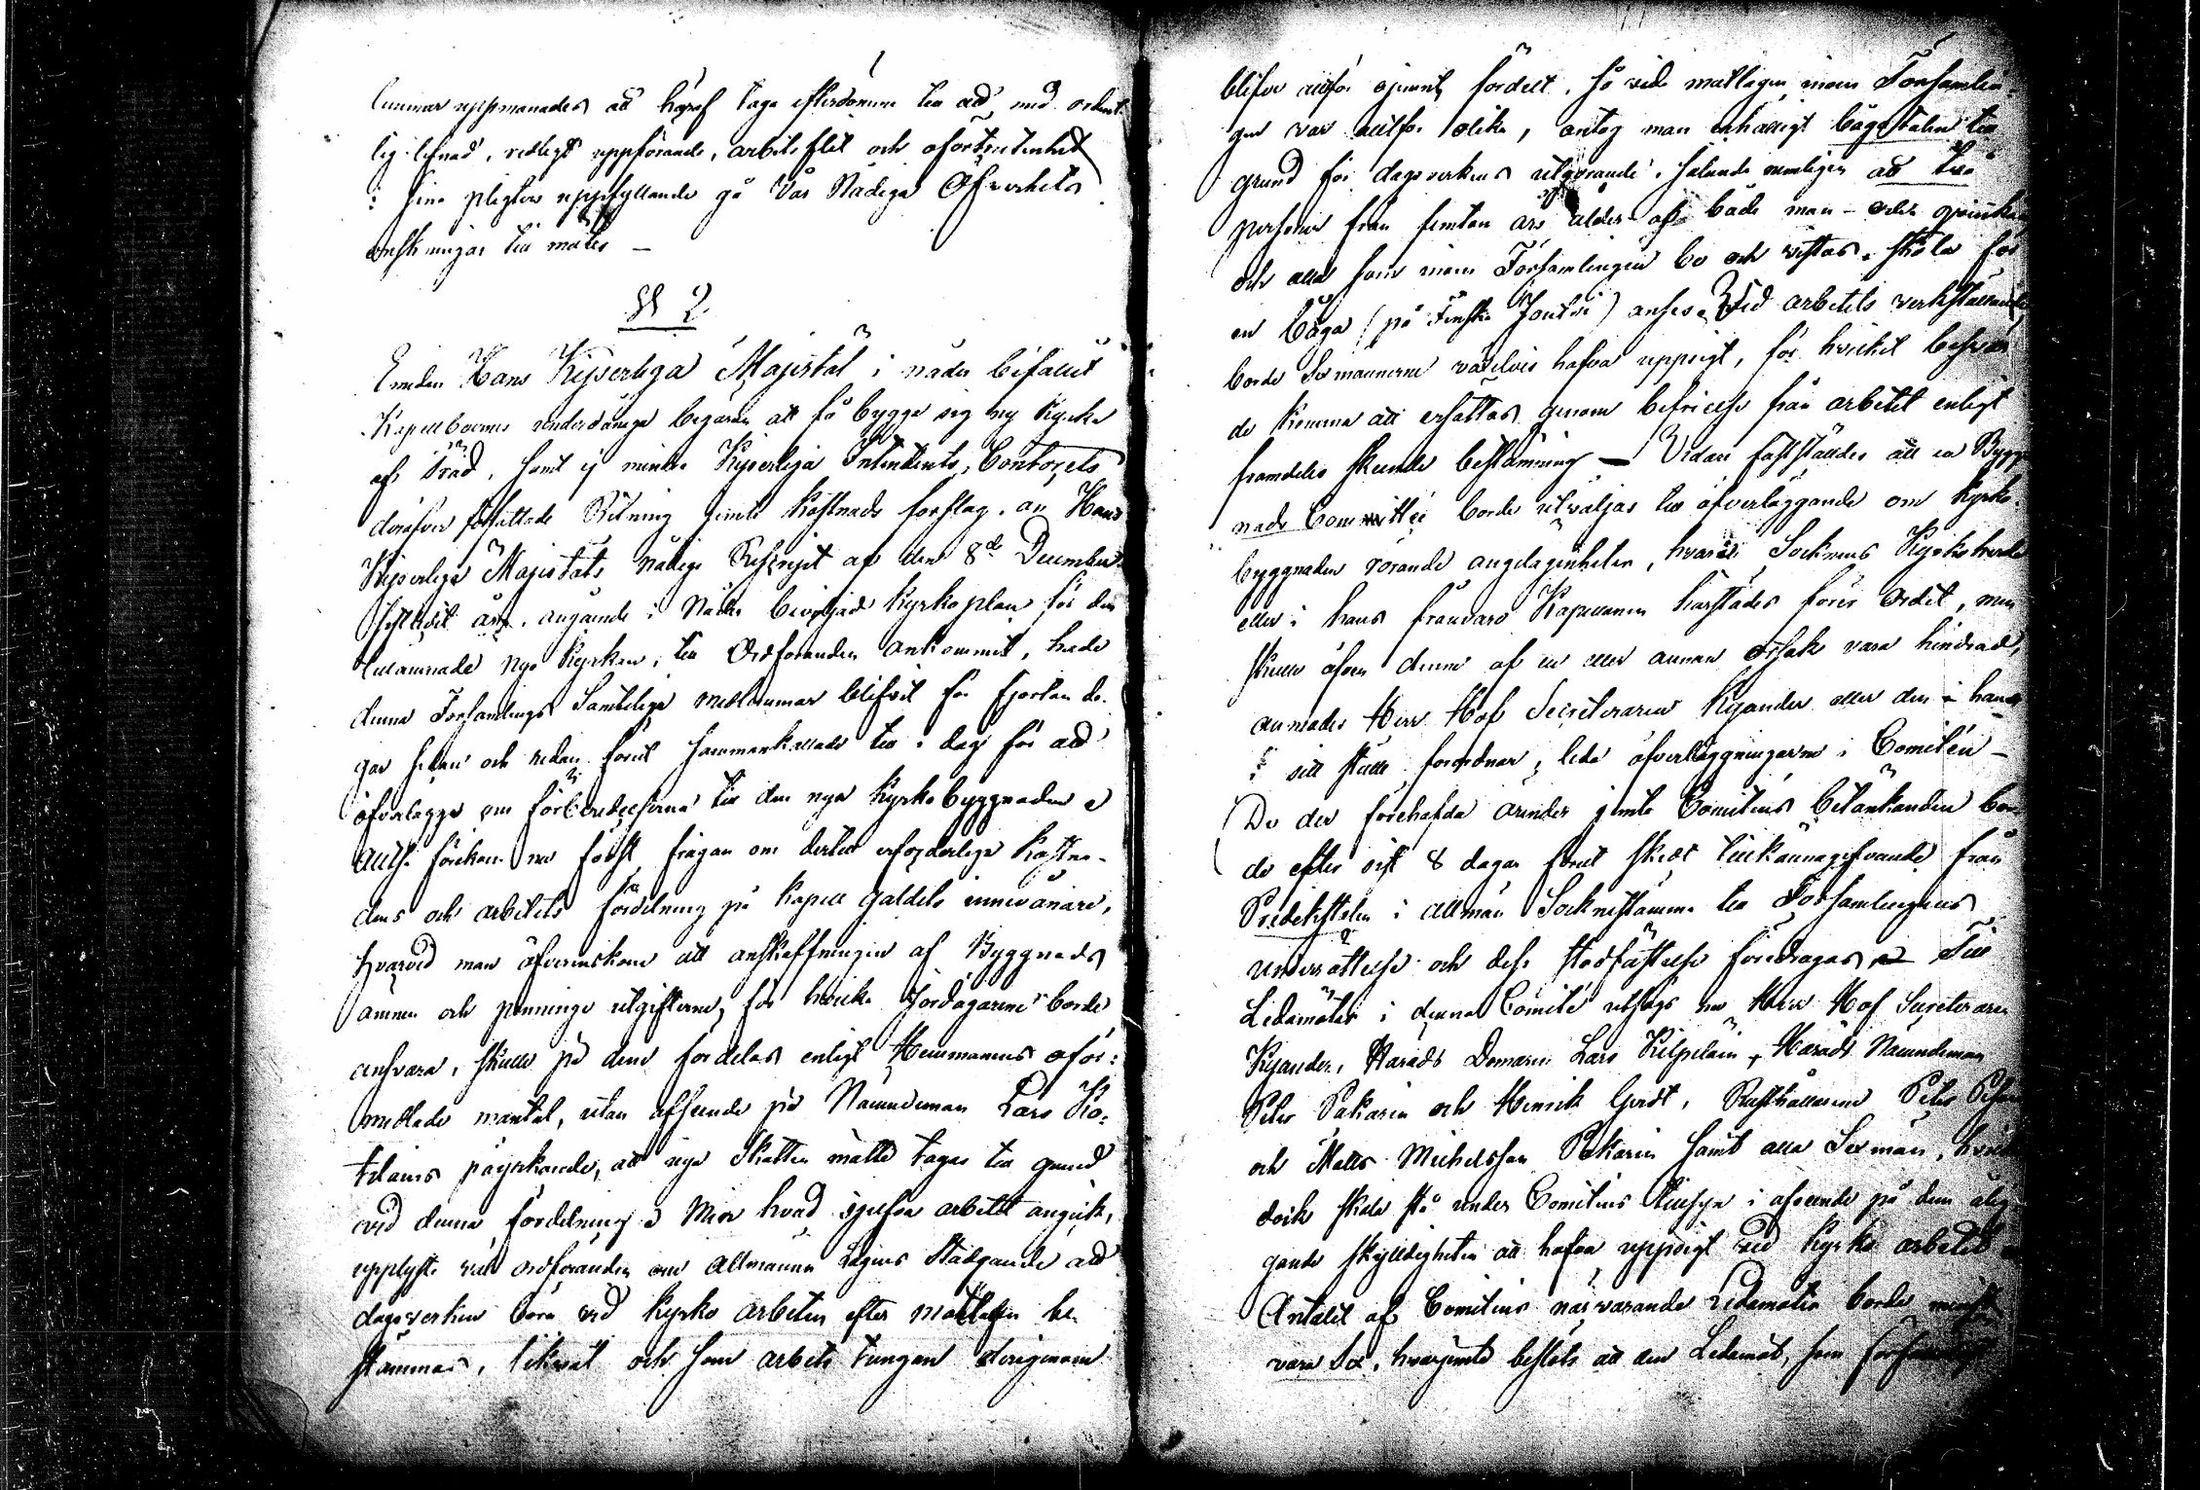 lemmar uppmanades att häraf taga efterdömme till att med ordent-
lig lefnad, redligt uppförande, arbetsflit och oförtrutenhet
i sina pligters uppfyllande gå Vår Nådiga Öfverhets
önskningar till mötes —
§ 2.
Emedan Hans Kejserliga Majestät i nåder bifallit
Kapellboernes underdåniga begäran att få bygga sig ny Kyrka
af Träd, samt ej mindre Kejserliga Intendents Contorets
deröfver författade Ritning jemte Kostnads förslag, än Hans
Kejserliga Majestäts nådiga Rescript af den 8de December
sistledit år, angående i Nåder beviljad Kyrkoplan för den
tillämnade nya Kyrkan, till Ordföranden ankommit, hade
denna Församlings samtelige medlemmar blifvit för fjorton da-
gar sedan och redan förut sammankallade till i dag för att
öfverlägga om förberedelserna till den nya Kyrkobyggnaden
Alltså förekom nu först frågan om dertill erforderliga Kostna-
dens och arbetets fördelning på Kapell Gäldets innevånare,
hvarvid man öfverenskom att anskaffningen af Byggnads
ämnen och penninge utgifterne, för hvilka Jordägarene borde
ansvara, skulle på dem fördelas enligt Hemmanens oför-
medlade mantal, utan afseende på Nämndeman Lars Ko-
telains påyrkande, att nya Skatten måtte tagas till grund
vid denna fördelning Men hvad sjelfva arbetet angick,
upplyste väl ordföranden om Allmänna Lagens Stadgande att
dagsverken böra vid Kyrko arbeten efter matlagen be-
stämmas, likväl och som arbets tungan derigenom
blifver alltför ojemnt fördelt, så vida matlagen inom Församlin-
gen var alltför olika, antog man enhälligt bågatalen till
grund för dagsverkens utgörande, sålunda nemligen att två
personer från femton års ålder af både man- och qvinnkön
och alla som inom Församlingen bo och vistas, skola för
en båga (på Finska Joutsi) anses. Vid arbetets verkställande
borde Sexmännerne växelvis hafva uppsigt, för hvilket besvär
de komma att ersättas genom befrielse från arbetet enligt
framdeles skeende bestämning — Vidare fastställdes att en Bygg-
nads Committée borde utväljas till öfverläggande om Kyrko-
byggnaden rörande angelägenheter, hvaröfver Socknens Kyrkoherde
eller i hans frånvaro Kapellanen härstädes förer Ordet, men
skulle äfven denne af en eller annan orsak vara hindrad,
anmodes Herr Hof Secreteraren Kyander eller den han
i sitt ställe förordnar, leda öfverläggningarne i Comitéen —
De der förehafda ärender jemte Comitéens betänkanden bor-
de efter sist 8 dagar förut skedt tillkännagifvande från
Predikstolen i allmän Sockneställma till Församlingens
underrättelse och dess stadfästelse föredragas Till
Ledamöter i denna Comité utsågs nu Herr Hof Secreteraren
Kyander, Härads Domaren Lars Kilpeläin, Härads Nämndeman
Peter Pakarin och Henrik Gerdt, Rusthållarene Peter
och Matts Michelsson Pakarin samt alla Sexmän, hvilka
dock skola stå under Comitéens tillsyn i afseende på dem ålig-
gande skyldigheter att hafva uppsigt vid Kyrko arbetet
Antalet af Comitéens närvarande Ledamöter borde minst
vara Sex, hvarjemte beslöts att den Ledamot, som